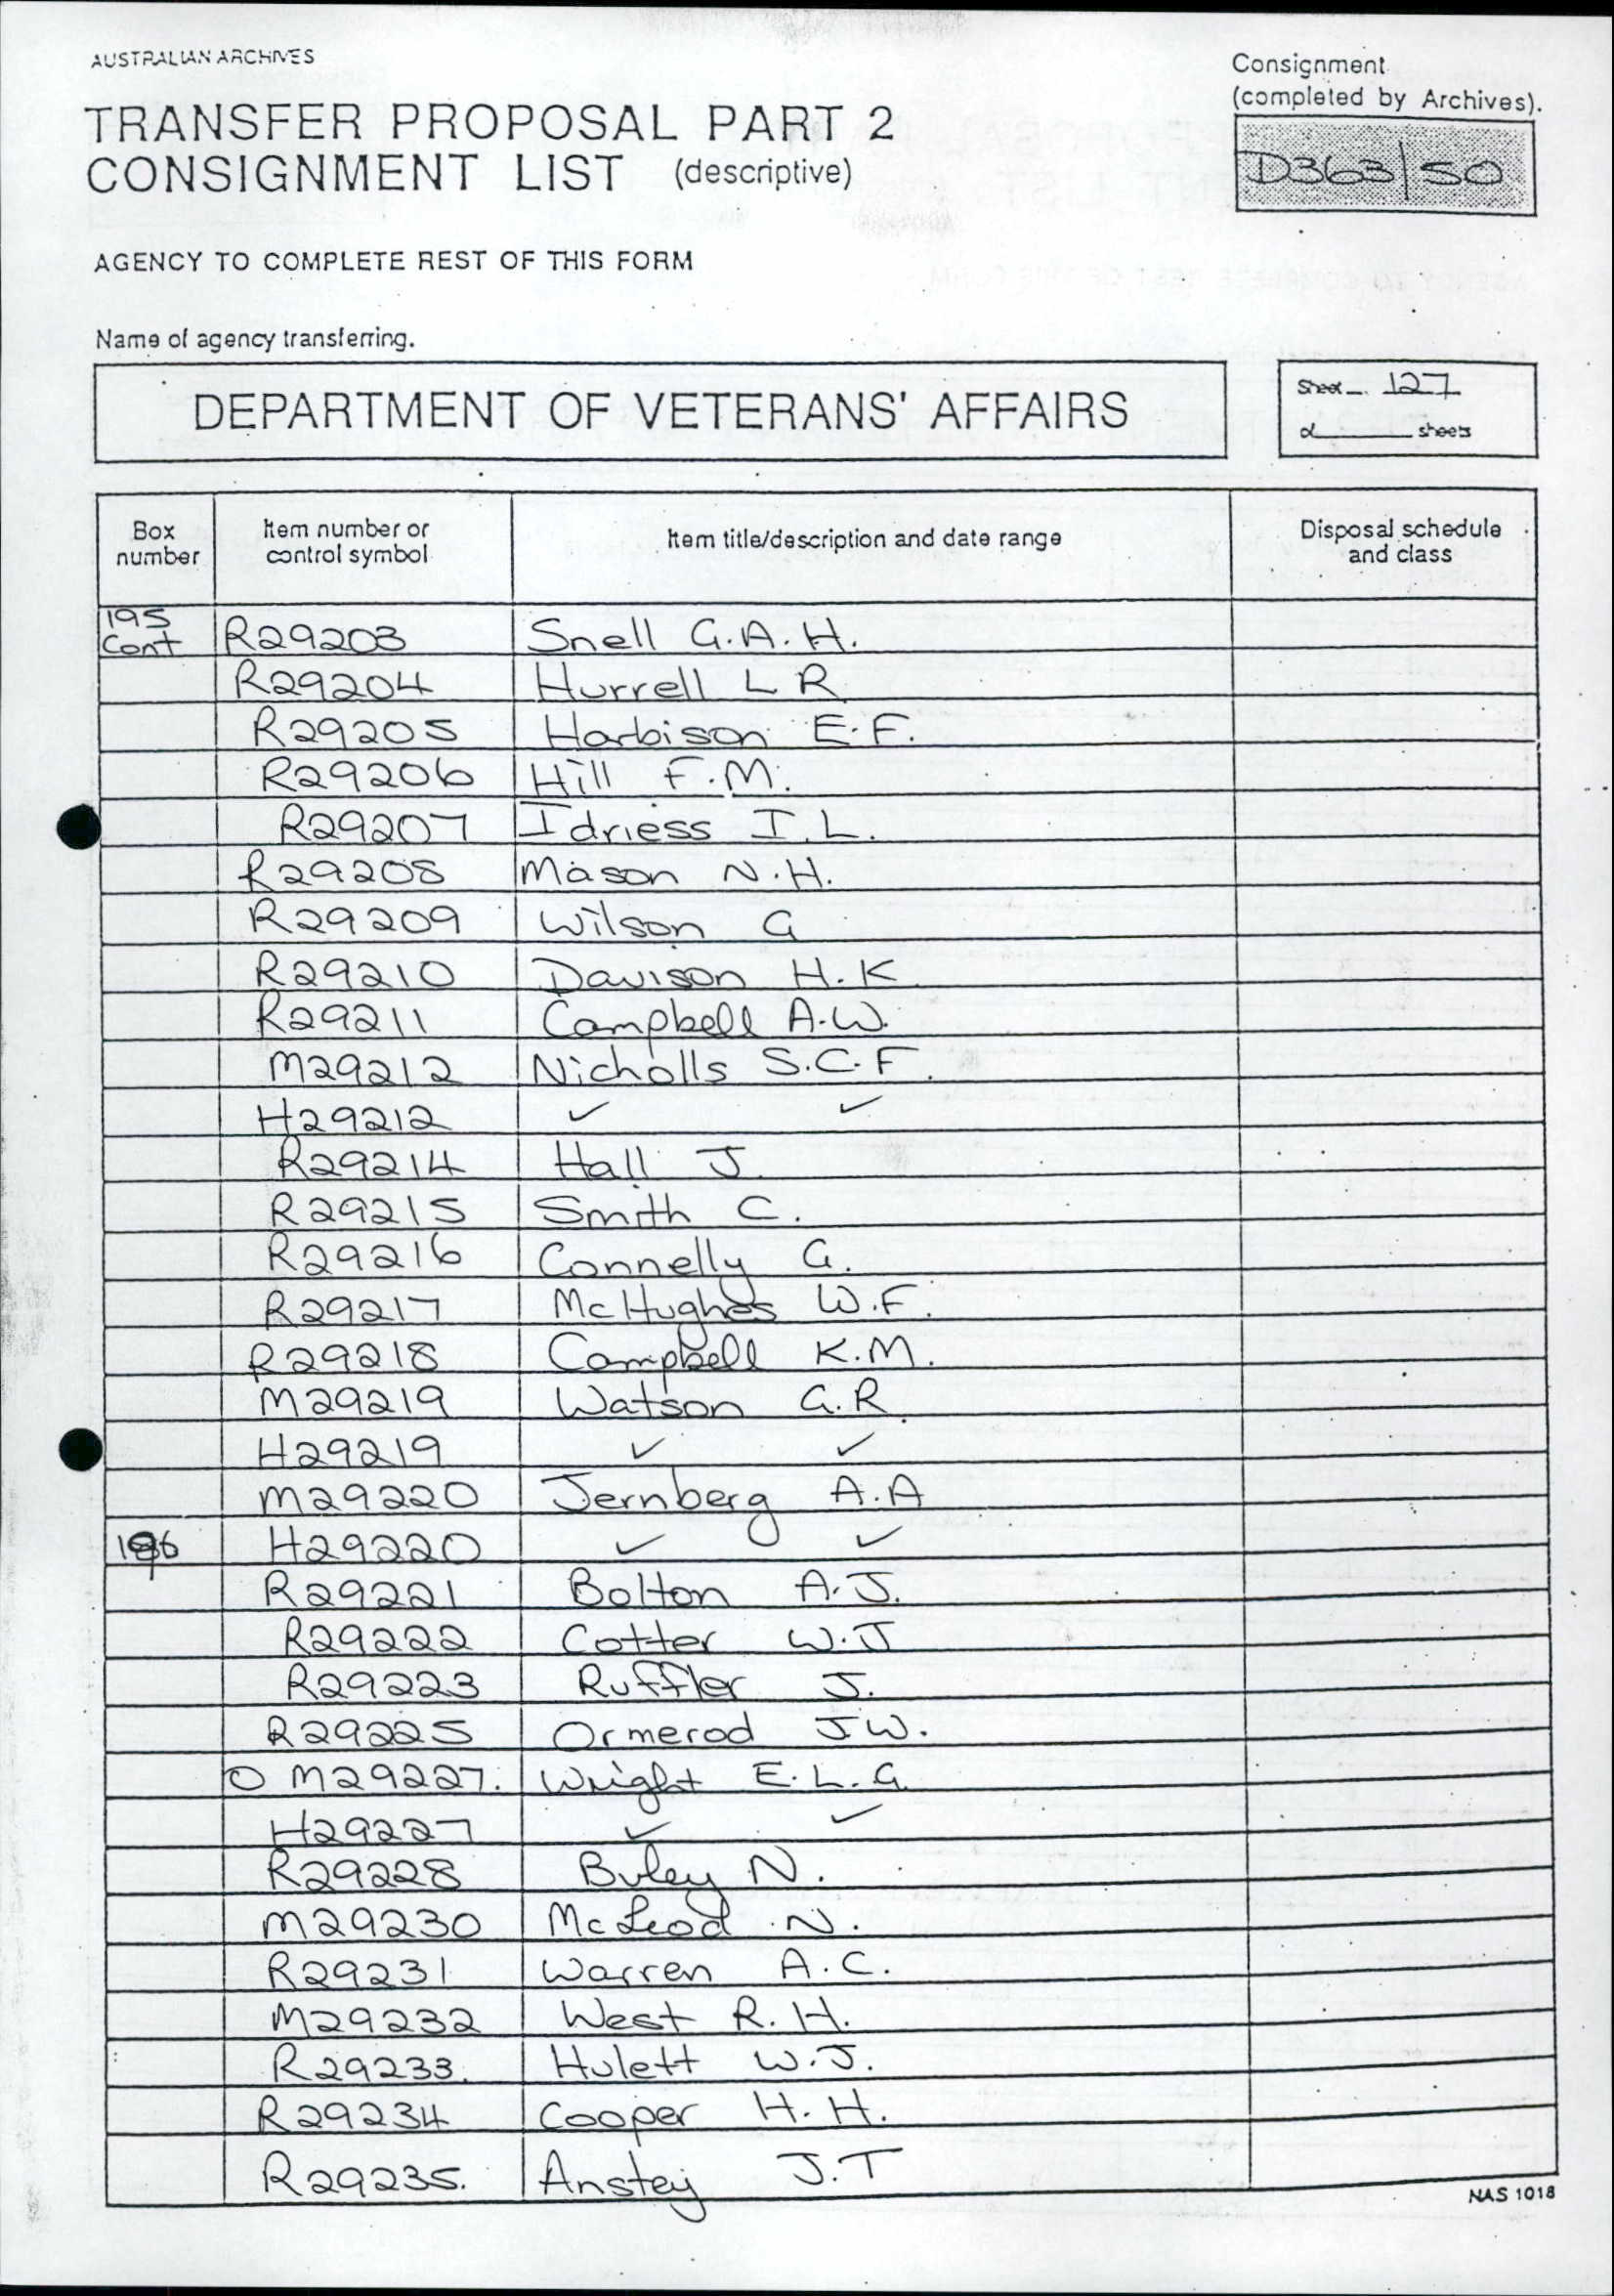 AUSTRALIAN ARCHIVES
Consignment
(completed by Archives).
TRANSFER PROPOSAL PART 2
CONSIGNMENT LIST (descriptive)
D363/50
AGENCY TO COMPLETE REST OF THIS FORM
Name of agency transferring.
DEPARTMENT OF VETERANS' AFFAIRS
Sheet 127
of sheets
Box number
Item number or control symbol
Item title/description and date range
Disposal schedule and class
195 Cont R29203 Snell G.A.H.
R29204 Hurrell L R
R29205 Harbison E.F.
R29206 Hill F.M.
R29207 Idriess I.L.
R29208 Mason N.H.
R29209 Wilson G
R29210 Davison H.K
R29211 Campbell A.W.
M29212 Nicholls S.C.F.
H29212 ✓ ✓
R29214 Hall J.
R29215 Smith C.
R29216 Connelly G.
R29217 McHughes W.F.
R29218 Campbell K.M.
M29219 Watson G.R.
H29219 ✓ ✓
M29220 Jernberg A.A
196 H29220 ✓ ✓
R29221 Bolton A.J.
R29222 Cotter W.J
R29223 Ruffler J.
R29225 Ormerod J.W.
O M29227. Wright E.L.G
H29227 ✓ ✓
R29228 Buley N.
M29230 McLeod N.
R29231 Warren A.C.
M29232 West R.H.
R29233. Hulett W.J.
R29234 Cooper H.H.
R29235. Anstey J.T
NAS 1018